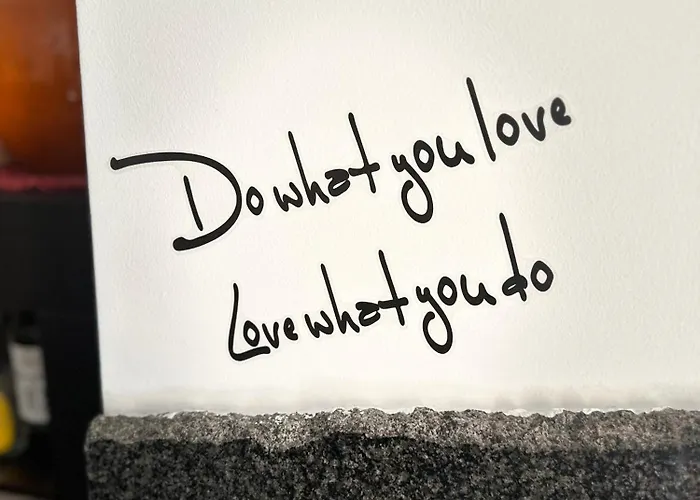 Do what you love
Love what you do